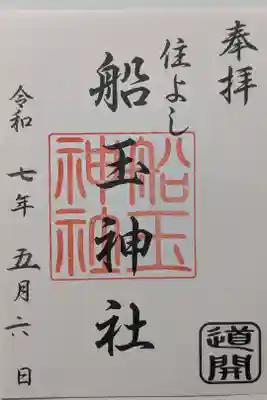 奉拝
住よし
船玉神社
船玉
神社
道開
令和七年五月六日